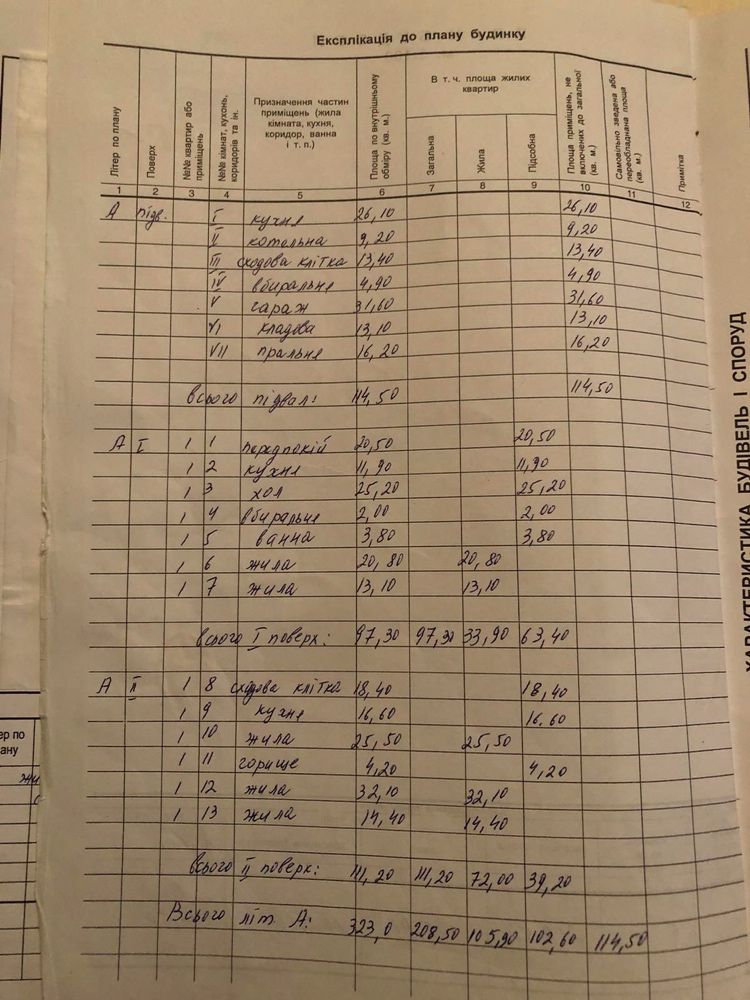 Експлікація до плану будинку
Літер по плану
Поверх
№№ квартир або приміщень
№№ кімнат, кухонь, коридорів та ін.
Призначення частин приміщень (жила кімната, кухня, коридор, ванна і т. п.)
Площа по внутрішньому обміру (кв. м.)
В т. ч. площа жилих квартир
Загальна
Жила
Підсобна
Площа приміщень, не включених до загальної (кв. м.)
Самовільно зведена або переобладнана площа (кв. м.)
Примітка
1 2 3 4 5 6 7 8 9 10 11 12
А підв. I кухня 26,10 26,10
II котельна 9,20 9,20
III сходова клітка 13,40 13,40
IV вбиральня 4,90 4,90
V гараж 31,60 31,60
VI кладова 13,10 13,10
VII пральня 16,20 16,20
всього підвал: 114,50 114,50
А I 1 1 передпокій 20,50 20,50
1 2 кухня 11,90 11,90
1 3 хол 25,20 25,20
1 4 вбиральня 2,00 2,00
1 5 ванна 3,80 3,80
1 6 жила 20,80 20,80
1 7 жила 13,10 13,10
всього I поверх: 97,30 97,30 33,90 63,40
А II 1 8 сходова клітка 18,40 18,40
1 9 кухня 16,60 16,60
1 10 жила 25,50 25,50
1 11 горище 4,20 4,20
1 12 жила 32,10 32,10
1 13 жила 14,40 14,40
всього II поверх: 111,20 111,20 72,00 39,20
Всього літ. А: 323,0 208,50 105,90 102,60 114,50
ХАРАКТЕРИСТИКА БУДІВЕЛЬ І СПОРУД